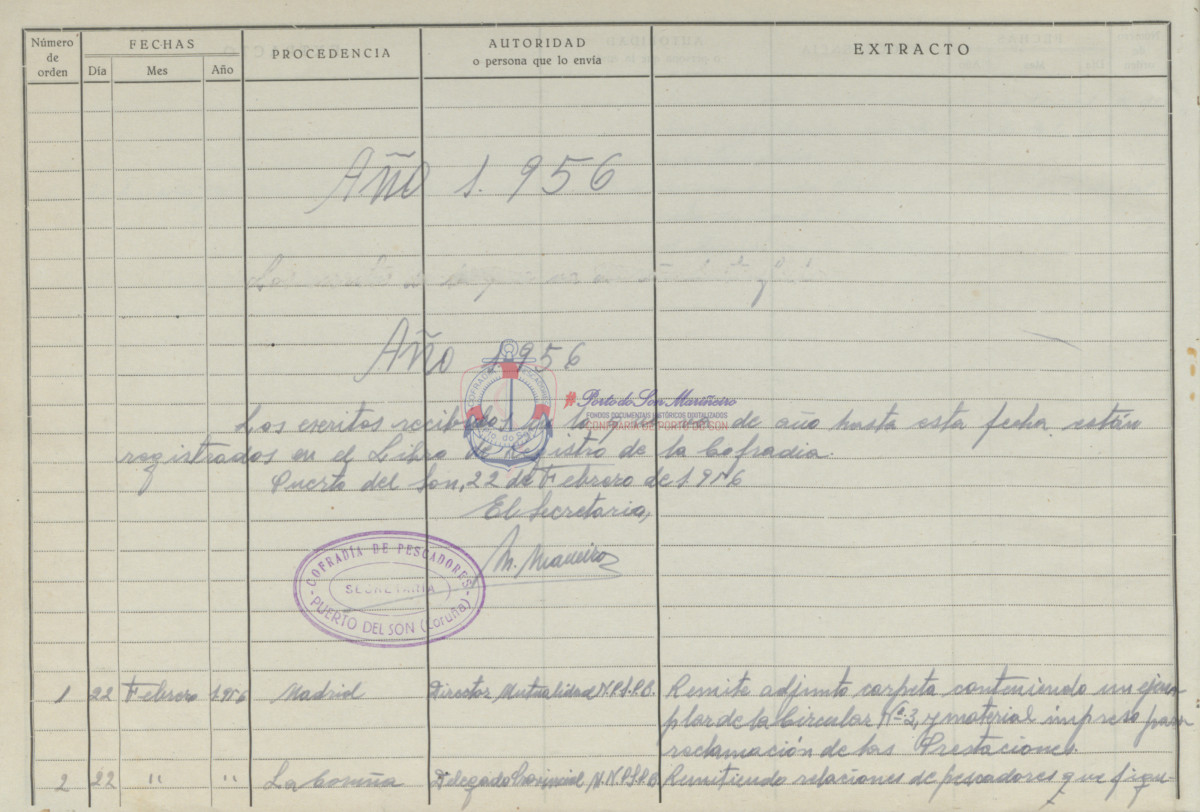 Número de orden
FECHAS
Día Mes Año
PROCEDENCIA
AUTORIDAD
o persona que lo envía
EXTRACTO
Año 1.956
Año 1.956
Los escritos recibidos de año hasta esta fecha están
registrados en el Libro de Registro de la Cofradía.
Puerto del Son, 22 de Febrero de 1956
El Secretario,
COFRADÍA DE PESCADORES
SECRETARIA
PUERTO DEL SON (Coruña)
# Porto do Son Mariñeiro
FONDOS DOCUMENTAIS HISTÓRICOS DIXITALIZADOS
CONFRARÍA DE PORTO DO SON
1 22 Febrero 1.956 Madrid Director Mutualidad N.P.S.P.B. Remite adjunto carpeta conteniendo un ejem-
plar de la Circular Nº 3, y material impreso para
reclamación de las Prestaciones.
2 22 " " La Coruña Delegado Provincial Remitiendo relaciones de pescadores que figu-